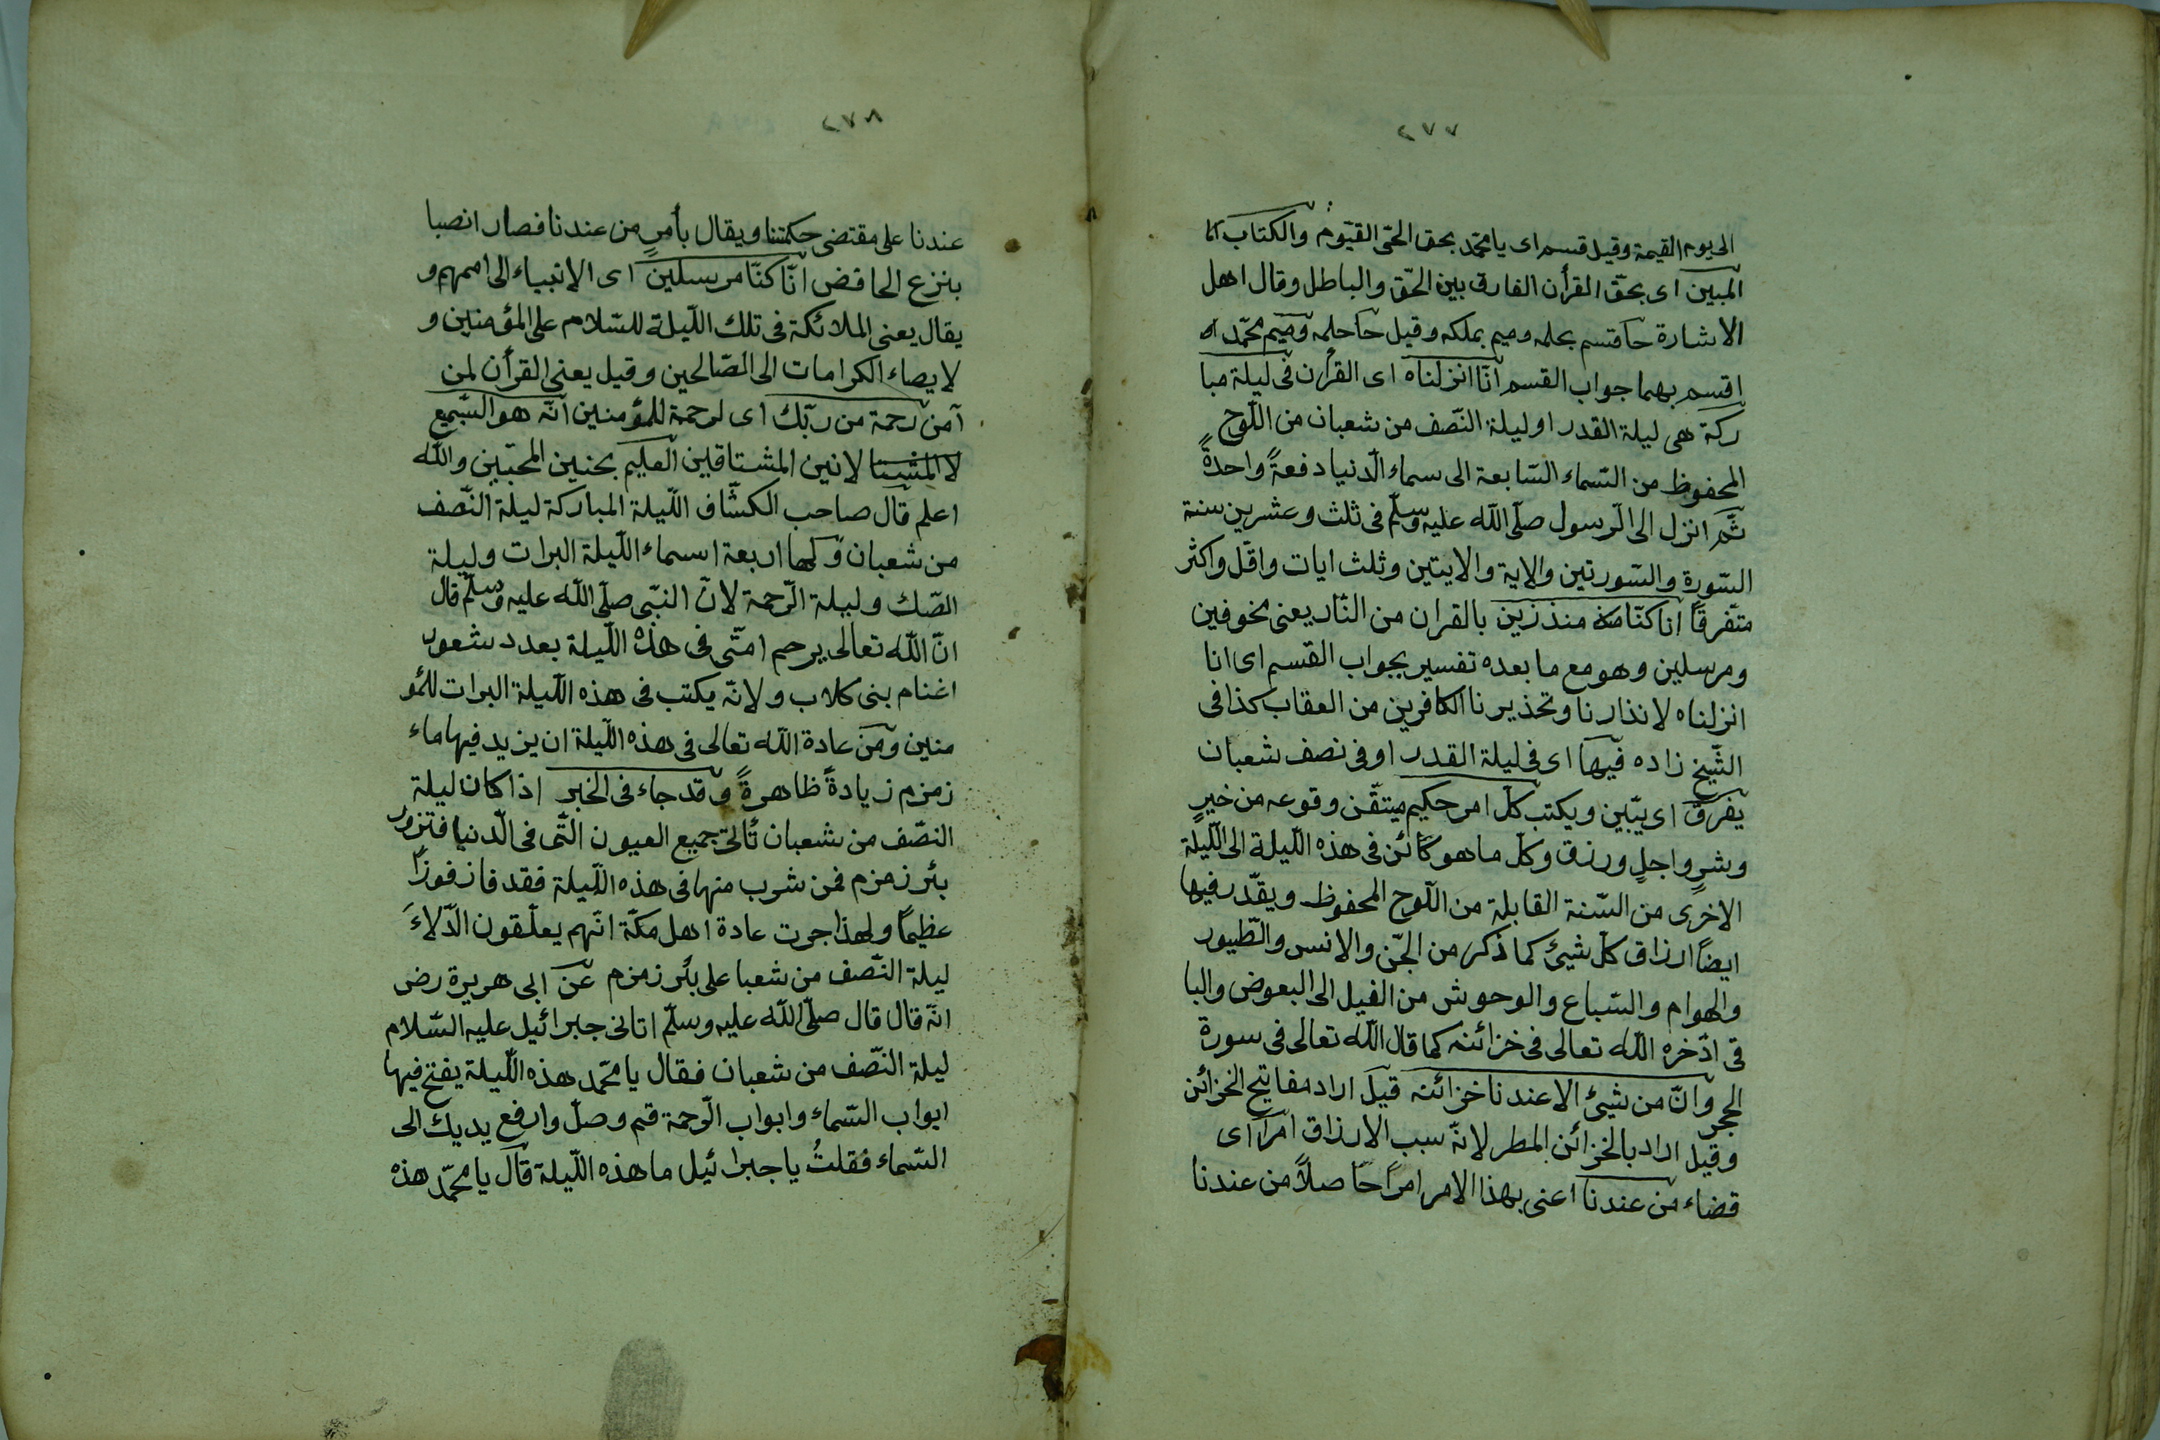 ٢٧٧
الى يوم القيمة وقيل قسم اى يا محمّد بحق الحىّ القيّوم والكتاب
المبين اى بحقّ القرأن الفارق بين الحقّ والباطل وقال اهل
الاشارة حا قسم بحلمه وميم بملكه وقيل حا حلمه وميم محمّد
اقسم بهما جواب القسم انّا انزلناه اى القرأن فى ليلة مبا
ركة هى ليلة القدر او ليلة النّصف من شعبان من اللّوح
المحفوظ من السّماء السّابعة الى سماء الدّنيا دفعةً واحدةً
ثمّ انزل الى الرّسول صلّى اللّه عليه وسلّم فى ثلث وعشرين سنة
السّورة والسّورتين والاية والايتين وثلث ايات واقلّ واكثر
متّفرقًا انا كنّا منذرين بالقران من النّار يعنى مخوفين
ومرسلين وهو مع ما بعده تفسير بجواب القسم اى انا
انزلناه لانذارنا وتحذيرنا الكافرين من العقاب كذا فى
الشّيخ زاده فيها اى فى ليلة القدر او فى نصف شعبان
يفرق اى يبّين ويكتب كلّ امر حكيم ميتقّن وقوعه من خيرٍ
وشرٍ واجلٍ ورزق وكلّ ما هو كائن فى هذه اللّيلة الى اللّيلة
الاخرى من السّنة القابلة من اللّوح المحفوظ ويقدّر فيها
ايضًا ارزاق كلّ شيئ كما ذكر من الجّن والانس والطّيور
والهوام والسّباع والوحوش من الفيل الى البعوض والبا
قى ادّخره اللّه تعالى فى خزائنه كما قال اللّه تعالى فى سورة
الحجر وانّ من شيئ الا عندنا خزائنه قيل اراد مفاتيح الخزائن
وقيل اراد بالخزائن المطر لانّه سبب الارزاق امرًا اى
قضاء من عندنا اعنى بهذا الامر امرًا حاصلاً من عندنا
٢٧٨
عندنا على مقتضى حكمتنا ويقال بأمرٍ من عندنا فصار انصبا
بنزع الحافض انّا كنّا مرسلين اى الانبياء الى اممهم و
يقال يعنى الملائكة فى تلك اللّيلة للسّلام على المؤمنين و
لايصاء الكرامات الى الصّالحين وقيل يعنى القرأن لمن
آمن رحمة من ربّك اى لرحمة للمؤمنين انّه هو السّميع
لا المشتا لانين المشتاقين العليم بحنين المحبّين واللّه
اعلم قال صاحب الكشّاف اللّيلة المباركة ليلة النّصف
من شعبان ولها اربعة اسماء اللّيلة البرات وليلة
الصّك وليلة الرّحمة لانّ النبّى صلّى اللّه عليه وسلّم قال
انّ اللّه تعالى يرحم امتّى فى هذه اللّيلة بعدد شعور
اغنام بنى كلاب ولانّه يكتب فى هذه اللّيلة البرات للمؤ
منين ومن عادة اللّه تعالى فى هذه اللّيلة ان يزيد فيها ماء
زمزم زيادةً ظاهرةً وقد جاء فى الخبر اذا كان ليلة
النصّف من شعبان تأتى جميع العيون الّتى فى الدّنيا فتزور
بئر زمزم فمن شرب منها فى هذه اللّيلة فقد فاز فوزًا
عظيمًا ولهذا جرت عادة اهل مكّة انّهم يعلّقون الدّلاءَ
ليلة النّصف من شعبا على بئر زمزم عن ابى هريرة رض
انّه قال قال صلّى اللّه عليه وسلّم اتانى جبرائيل عليه السّلام
ليلة النّصف من شعبان فقال يا محّمد هذه اللّيلة يفتح فيها
ابواب السّماء وابواب الرّحمة قم وصلّ وارفع يديك الى
السّماء فقلتُ يا جبرائيل ما هذه اللّيلة قال يا محمّد هذه